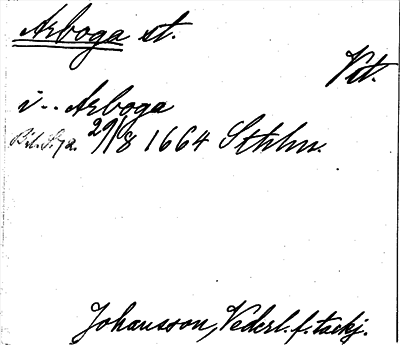 Arboga st.
Vst.
i.. Arboga
29/8 1664 Sthlm.
Johansson, Vederl. f. täckj.